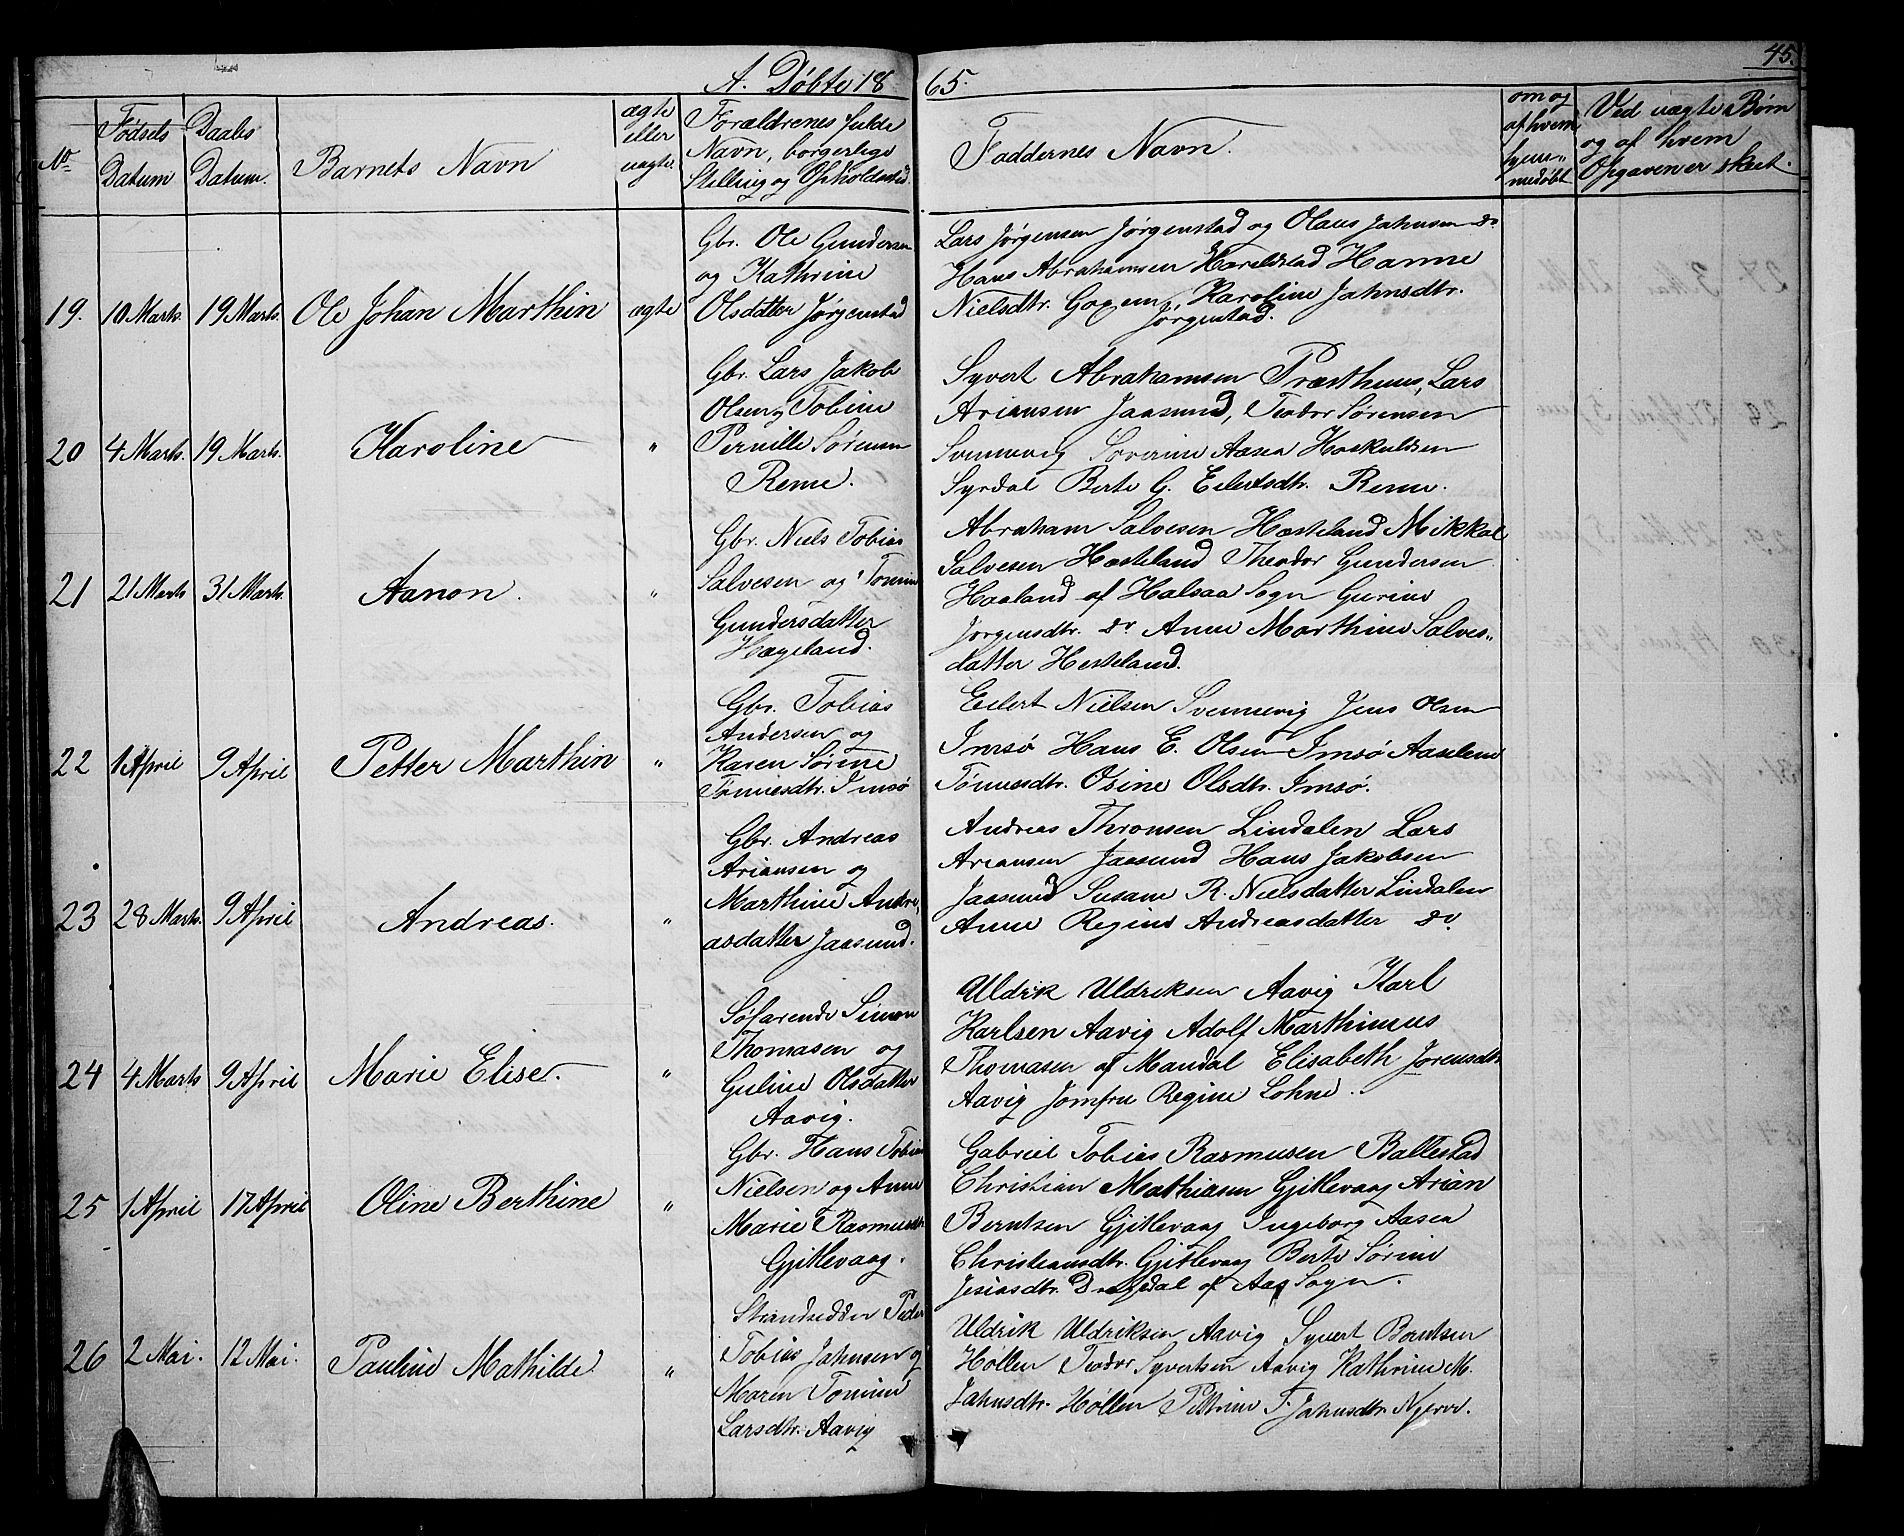 45.
A. Døbte 1865.
No
Fødsels Datum
Daabs Datum.
Barnets Navn
ægte eller uægte
Forældrenes fulde Navn, borgerlige Stilling og Opholdssted
Faddernes Navn.
om og af hvem hjem„ medøbt
Ved uægte Børn og af hvem Opgaven er skeet.
19. 10 Marts. 19 Marts. Ole Johan Marthin ægte
Gbr. Ole Gundersen
og Kathrine
Olsdatter Jørgenstad
Lars Jørgensen Jørgenstad og Olaus Jahnsen do
Hans Abrahamsen Haraldstad Hanne
Nielsdtr. Goxem, Karoline Jahnsdtr.
Jörgenstad.
20 4 Marts. 19 Marts. Karoline „
Gbr. Lars Jakob
Olsen og Tobine
Pernille Sørensen
Reme.
Syvert Abrahamsen Præsthuus, Lars
Ariansen Jaasund, Teodor Sørensen
Svennevig Severine Aasea Haskuldsen
Syrdal Berte G. Eilertsdtr. Reme.
21 21 Marts 31 Marts. Aanon. „
Gbr. Niels Tobias
Salvesen og Tomine
Gundersdatter
Hægeland.
Abraham Salvesen Hæsteland Mikkal
Salvesen Hæsteland Theodor Gundersen
Haaland af Halsaa Sogn Gurine
Jørgensdtr. do Anne Marthine Salves„
datter Hesteland.
22 1 April 9 April Petter Marthin „
Gbr. Tobias
Andersen og
Karen Sørine
Tønnesdtr. Imsø
Eilert Nielsen Svennevig Jens Olsen
Imsø Hans E. Olsen Imsø Aaselene
Tønnesdtr. Osine Olsdtr. Imsø.
23 28 Marts. 9 April Andreas. „
Gbr. Andreas
Ariansen og
Marthine Andre„
asdatter Jaasund.
Andreas Thronsen Lindalen Lars
Ariansen Jaasund Hans Jakobsen
Jaasund Susane R. Nielsdatter Lindalen
Anne Regine Andreasdatter do
24 4 Marts 9 April Marie Elise. „
Søfarende Simon
Thomasen og
Guline Olsdatter
Aavig.
Uldrik Uldriksen Aavig Karl
Karlsen Aavig Adolf Marthinius
Thomasen af Mandal Elisabeth Jørensdtr.
Aavig Jomfru Regine Lohne.
25 1 April 17 April Oline Berthine „
Gbr. Hans Tobias
Nielsen og Anne
Marie Rasmusdtr.
Gjitlevaag.
Gabriel Tobias Rasmusen Ballestad
Christian Mathiasen Gjitlevaag Arian
Berntsen Gjitlevaag Ingeborg Aasea
Christiansdtr. Gjitlevaag Berte Sørine
Jesiasdtr. Drægedal af Aas Sogn.
26 2 Mai. 12 Mai. Pauline Mathilde „
Strandsidder Peder
Tobias Jahnsen og
Maren Tomine
Larsdtr. Aavig
Uldrik Uldriksen Aavig Syvert Berntsen
Høllen Teodor Syvertsen Aavig Kathrine M.
Jahnsdtr. Höllen Pettrine T. Jahnsdtr. Njerve.